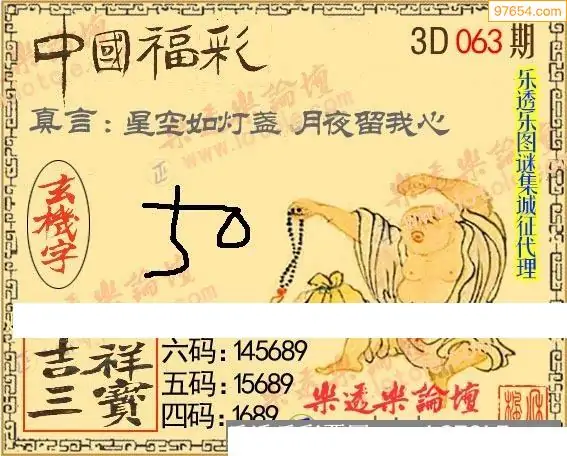 97654.com
中國福彩
3D 063 期
真言：星空如灯盏 月夜留我心
乐透乐图谜集诚征代理
玄機字
50
吉祥
三寶
六码：145689
五码：15689
四码：1689
樂透樂論壇